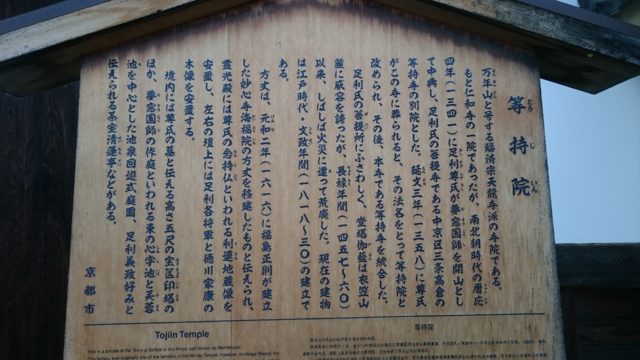 等持院
とうじいん
万年山と号する臨済宗天龍寺派の寺院である。
もと仁和寺の一院であったが、南北朝時代の暦応
四年（一三四一）に足利尊氏が夢窓国師を開山とし
て中興し、足利氏の菩提寺である中京区三条高倉の
等持寺の別院とした。延文三年（一三五八）に尊氏
がこの寺に葬られると、その法名をとって等持院と
改められ、その後、本寺である等持寺を統合した。
足利氏の菩提所にふさわしく、堂塔伽藍は衣笠山
麓に威容を誇ったが、長禄年間（一四五七～六〇）
以来、しばしば火災に遭って荒廃した。現在の建物
は江戸時代・文政年間（一八一八～三〇）の建立で
ある。
方丈は、元和二年（一六一六）に福島正則が建立
した妙心寺海福院の方丈を移建したものと伝えられ、
霊光殿には尊氏の念持仏といわれる利運地蔵像を
安置し、左右の壇上には足利各将軍と徳川家康の
木像を安置する。
境内には尊氏の墓と伝える高さ五尺の宝篋印塔の
ほか、夢窓国師の作庭といわれる東の心字池と芙蓉
池を中心とした池泉回遊式庭園、足利義政好みと
伝えられる茶室清漣亭などがある。
京都市
Tojiin Temple
等持院